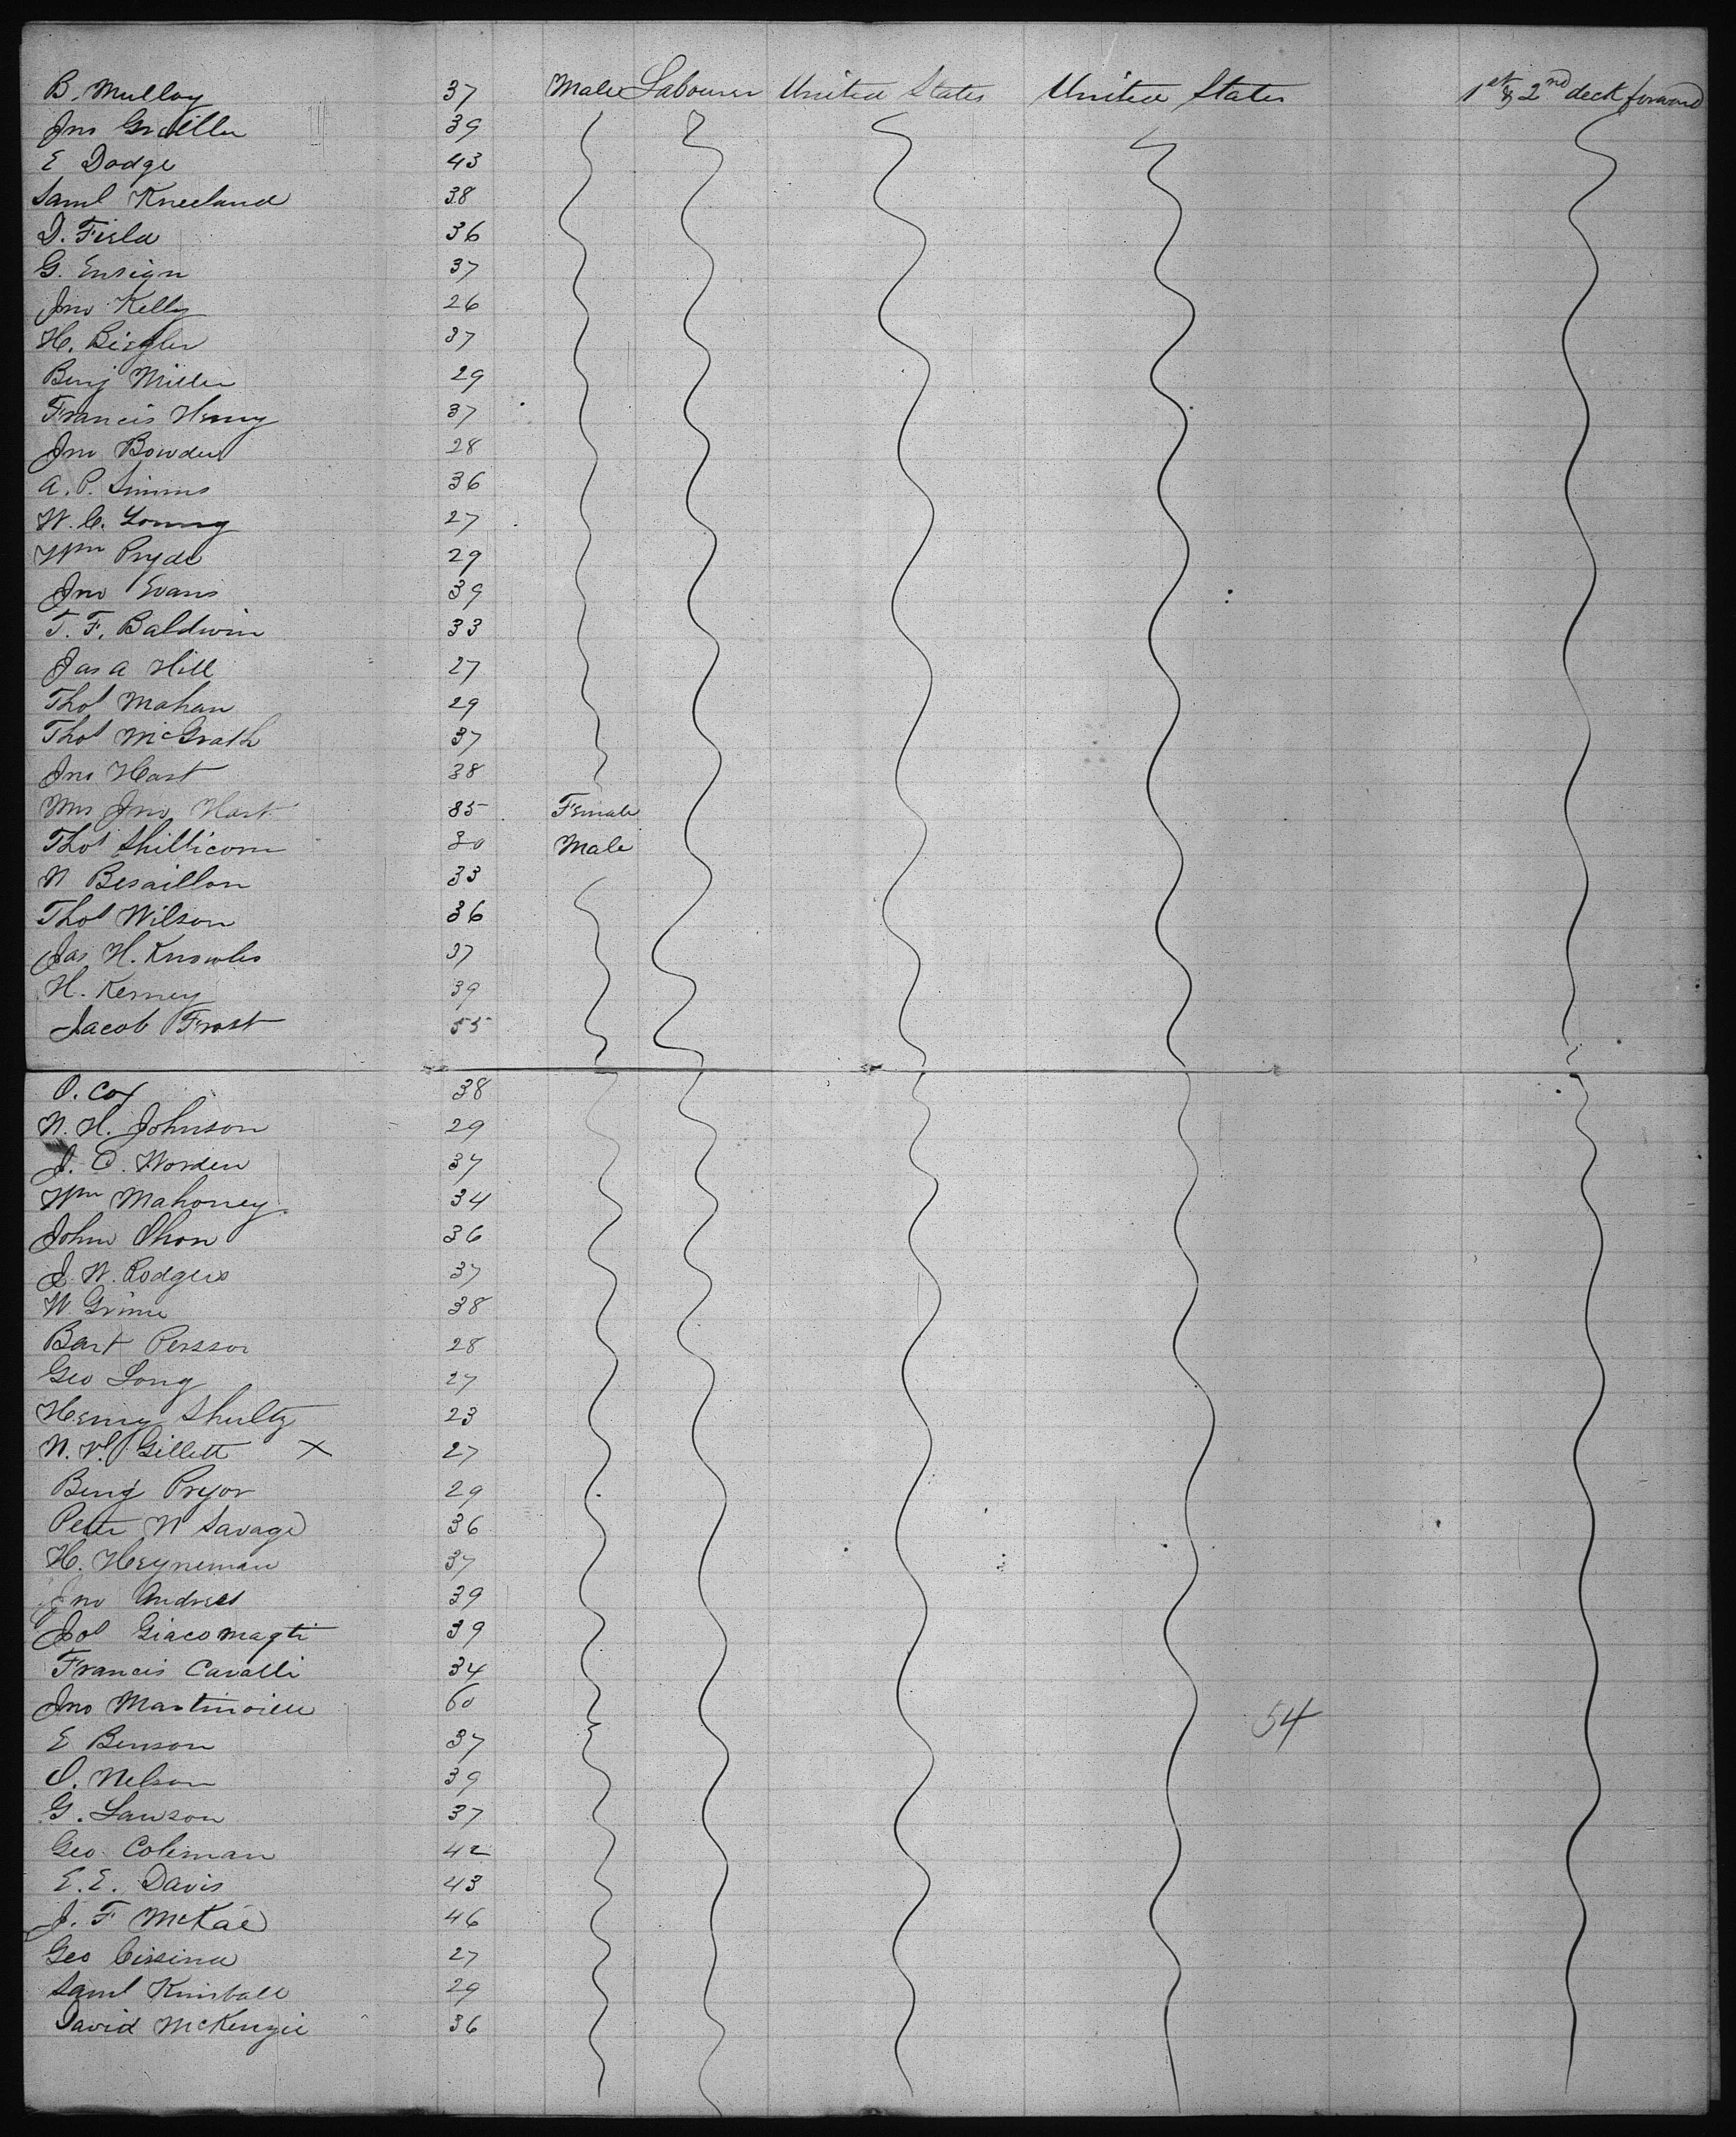 B. Mulloy 37 Male Labourer United States United States 1st & 2nd deck forward
Jno 39
E Dodge 43
Saml Kneeland 38
D. Field 36
G. Ensign 37
Jno Kelly 26
H. Biegler 37
Benj Miller 29
Francis Henry 37
Jno Bowden 28
A. P. Simms 36
W. C. Young 27
Wm Pryde 29
Jno Evans 39
T. F. Baldwin 33
Jas A Hill 27
Thos Mahan 29
Thos McGrath 37
Jno Hart 38
Mrs Jno Hart 35 Female
Thos Shillicom 30 Male
N Besaillon 33
Thos Wilson 36
Jas H. Knowles 37
H. Kerney 39
Jacob Frost 55
O. Cox 38
N. H. Johnson 29
J. O. Worden 37
Wm Mahoney 34
John Ohon 36
J. W. Rodgers 37
W. Grime 38
Bart Perssor 28
Geo Long 27
Henry Shultz 23
Gillett X 27
Benj Pryor 29
Peter W Savage 36
H. Heyneman 37
Jno Andres 39
Jos Giacomagti 39
Francis Cavalli 34
Jno 60
54
E Benson 37
O. Nelson 39
G. Lawson 37
Geo Coleman 42
E. E. Davis 43
J. F McKae 46
Geo 27
Saml Kimball 29
David McKenzie 36